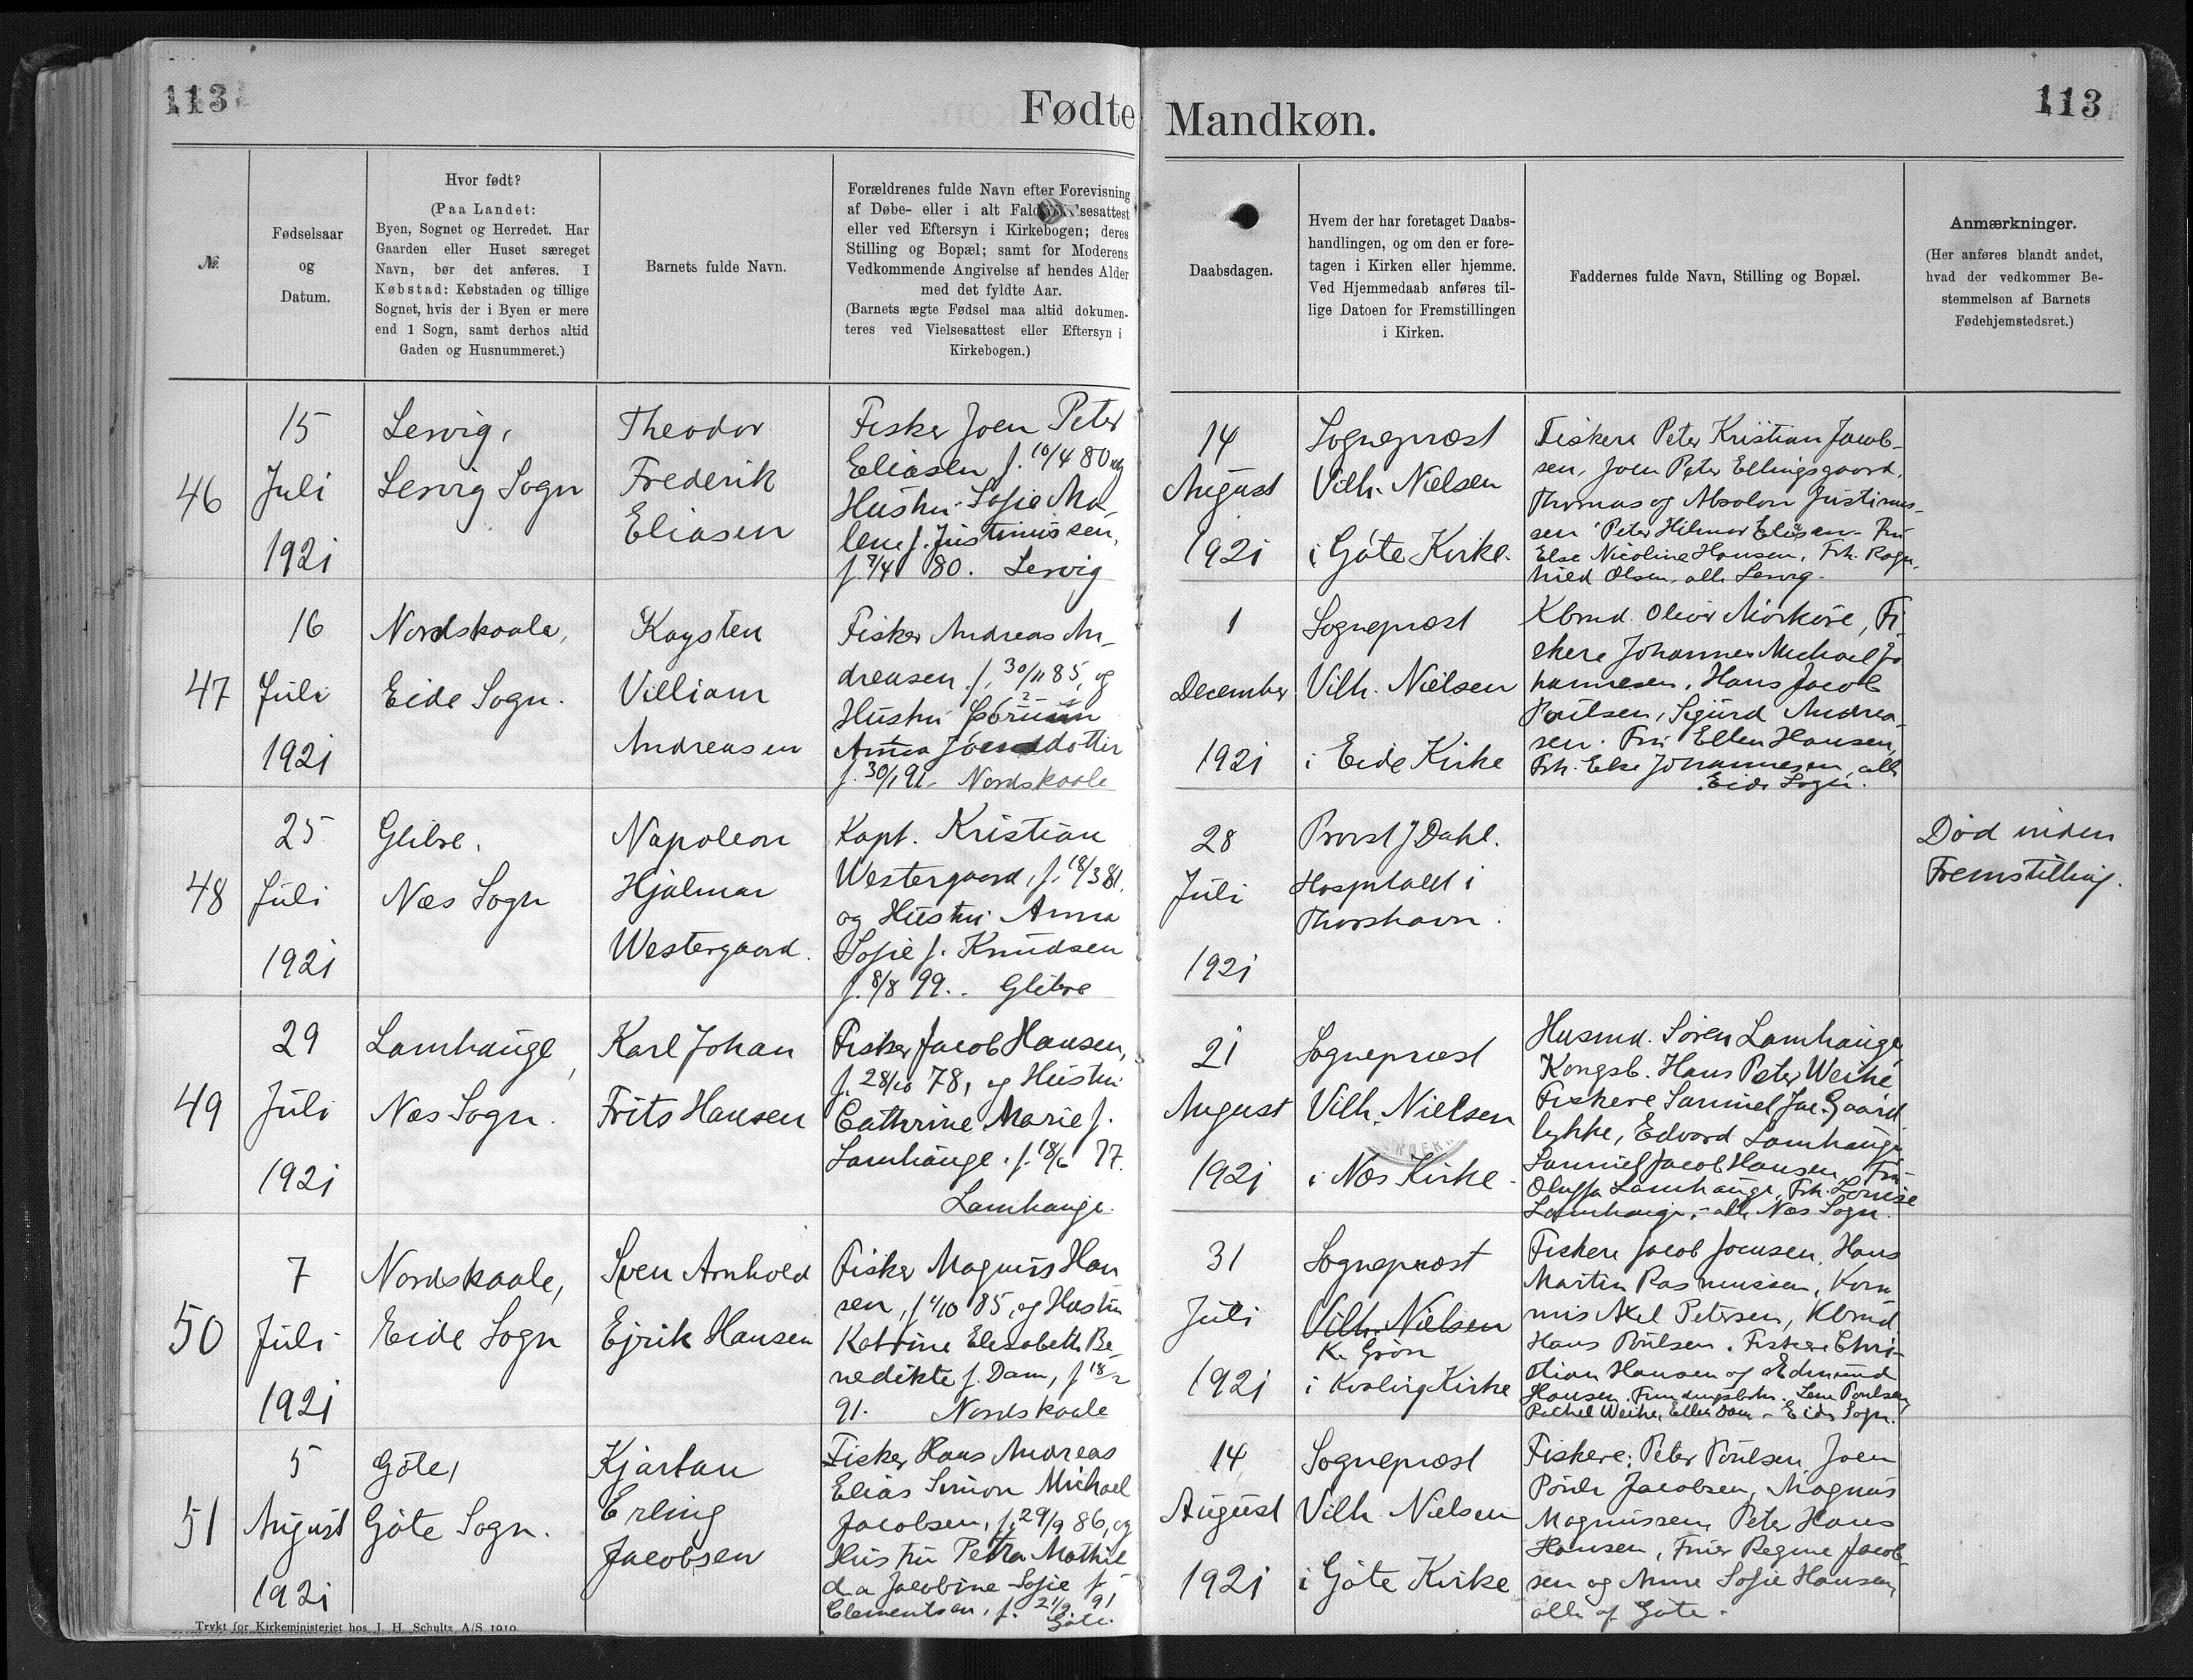 113
Fødte
Mandkøn.
113
№
Fødselsaar
og
Datum.
Hvor født?
(Paa Landet:
Byen, Sognet og Herredet. Har
Gaarden eller Huset særeget
Navn, bør det anføres. I
Købstad: Købstaden og tillige
Sognet, hvis der i Byen er mere
end 1 Sogn, samt derhos altid
Gaden og Husnummeret.)
Barnets fulde Navn.
Forældrenes fulde Navn efter Forevisning
af Døbe- eller i alt Fald
eller ved Eftersyn i Kirkebogen; deres
Stilling og Bopæl; samt for Moderens
Vedkommende Angivelse af hendes Alder
med det fyldte Aar.
(Barnets ægte Fødsel maa altid dokumen-
teres ved Vielsesattest eller Eftersyn i
Kirkebogen.)
Daabsdagen.
Hvem der har foretaget Daabs-
handlingen, og om den er fore-
tagen i Kirken eller hjemme.
Ved Hjemmedaab anføres til-
lige Datoen for Fremstillingen
i Kirken.
Faddernes fulde Navn, Stilling og Bopæl.
Anmærkninger.
(Her anføres blandt andet,
hvad der vedkommer Be-
stemmelsen af Barnets
Fødehjemstedsret.)
46
15
Juli
1921
Lervig,
Lervig Sogn
Theodor
Frederik
Eliasen
Fisker Joen Peter
Eliasen, f. 10/4 80 og
Hustru Sofie Ma-
lene f. Justinussen,
f. 7/4 80. Lervig
14
August
1921
Sognepræst
Vilh. Nielsen
i Göte Kirke.
Fiskere Peter Kristian Jacob-
sen, Joen Peter Ellingsgaard,
Thomas og Absalon Justinus-
sen Peter Hilmar Eliasen. Fru
Else Nicoline Hansen, Frk. Ragn-
hild Olsen, alle Lervig.
47
16
Juli
1921
Nordskaale,
Eide Sogn.
Kaysten
Villiam
Andreasen
Fisker Andreas An-
dreasen f. 30/11 85, og
Hustru
Anna
f. 30/1 91. Nordskaale
1
December
1921
Sognepræst
Vilh. Nielsen
i Eide Kirke
Kbmd. Oliver Mörköre, Fi-
skere Johannes Michael Jo-
hannesen, Hans Jacob
Poulsen, Sigurd Andrea-
sen. Fru Ellen Hansen,
Frk. Else Johannesen, alle
Eide Sogn.
48
25
Juli
1921
Glibre.
Næs Sogn
Napoleon
Hjalmar
Westergaard.
Kapt. Kristian
Westergaard, f. 18/3 81.
og Hustru Anna
Sofie f. Knudsen
f. 8/8 99. Glibre
28
Juli
1921
Provst J Dahl.
Hospitalet i
Thorshavn.
Död inden
Fremstilling.
49
29
Juli
1921
Lamhauge,
Næs Sogn.
Karl Johan
Frits Hansen
Fisker Jacob Hansen,
f. 28/10 78, og Hustru
Cathrine Marie f.
Lamhauge. f. 18/6 77.
Lamhauge.
21
August
1921
Sognepræst
Vilh. Nielsen
i Næs Kirke
Husmd. Sören Lamhauge,
Kongsb. Hans Peter Weihe
Fiskere Samuel Jac. Gaard-
lykke, Edvard Lamhauge
Samuel Jacob Hansen, Fru
Oluffa Lamhauge, Frk. Louise
Lamhauge, - alle Næs Sogn.
50
7
Juli
1921
Nordskaale,
Eide Sogn
Sven Arnhold
Ejrik Hansen
Fisker Magnus Han
sen, f 4/10 85, og Hustru
Katrine Elisabeth Be-
nedikte f. Dam, f 18/2
91. Nordskaale
31
Juli
1921
Sognepræst
Vilh. Nielsen
K. Grön
i Kvalvig Kirke
Fiskere Jacob Joensen, Hans
Martin Rasmussen, Kom
mis Axel Petersen, Kbmd
Hans Poulsen. Fiskere Chri-
stian Hansen og Edmund
Hansen. Lene Poulsen,
Rachel Weihe, Ellen Dam - Eide Sogn.
51
5
August
1921
Göte,
Göte Sogn.
Kjartan
Erling
Jacobsen
Fisker Hans Andreas
Elias Simon Michael
Jacobsen, f. 29/9 86, og
Hustru Petra Mathil
da Jacobine Sofie f.
Clementsen, f. 21/9 91
Göte.
14
August
1921
Sognepræst
Vilh. Nielsen
i Göte Kirke
Fiskere: Peter Poulsen, Joen
Poule Jacobsen, Magnus
Magnussen, Peter Hans
Hansen, Fruer Regine Jacob-
sen og Anne Sofie Hansen,
alle af Göte.
Trykt for Kirkeministeriet hos J. H. Schultz A/S 1919.